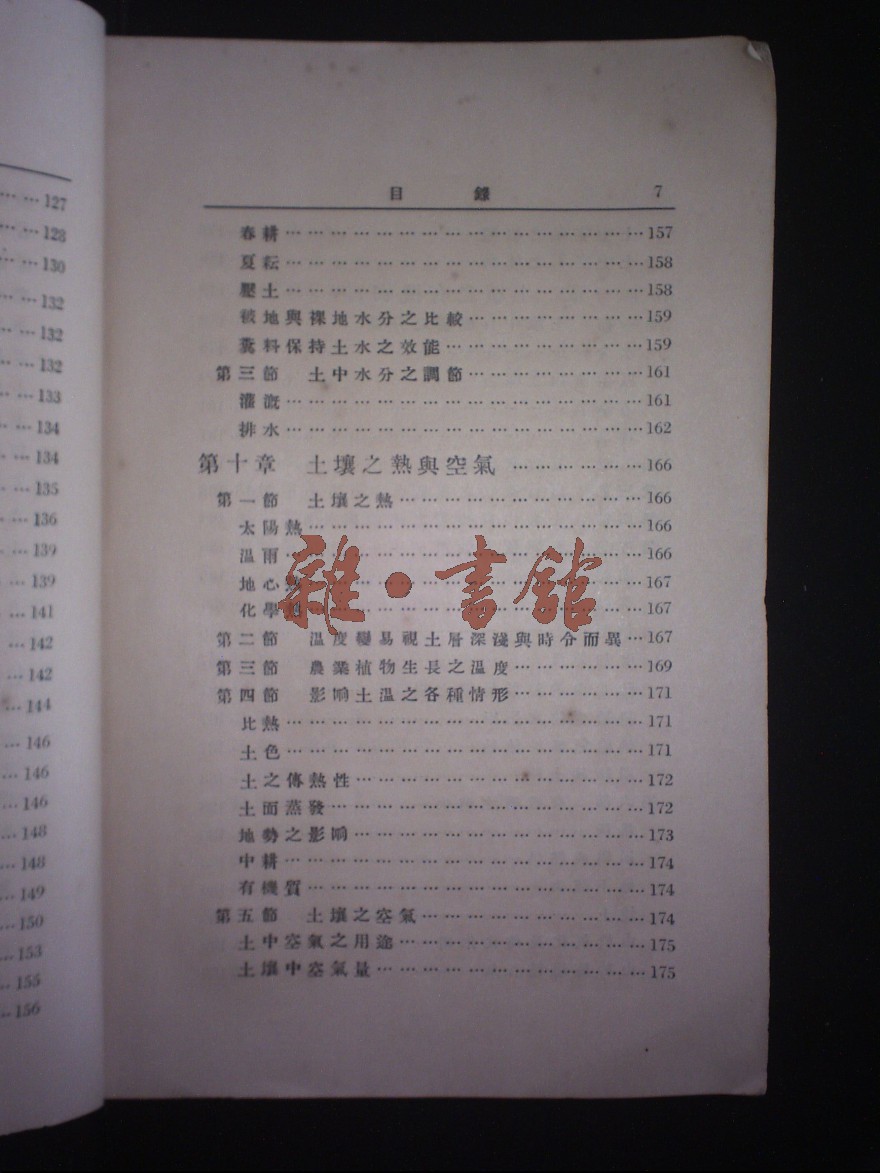 127
128
130
132
132
132
133
134
134
135
136
139
139
141
142
142
144
146
146
146
148
148
149
150
153
155
156
目錄 7
春耕………………………………………157
夏耘………………………………………158
壓土………………………………………158
被地與裸地水分之比較…………………159
糞料保持土水之效能……………………159
第三節 土中水分之調節………………161
灌溉………………………………………161
排水………………………………………162
第十章 土壤之熱與空氣………………166
第一節 土壤之熱………………………166
太陽熱……………………………………166
溫雨………………………………………166
地心熱……………………………………167
化學熱……………………………………167
第二節 溫度變易視土層深淺與時令而異…167
第三節 農業植物生長之溫度…………169
第四節 影響土溫之各種情形…………171
比熱………………………………………171
土色………………………………………171
土之傳熱性………………………………172
土面蒸發…………………………………172
地勢之影響………………………………173
中耕………………………………………174
有機質……………………………………174
第五節 土壤之空氣……………………174
土中空氣之用途…………………………175
土壤中空氣量……………………………175
雜·書館